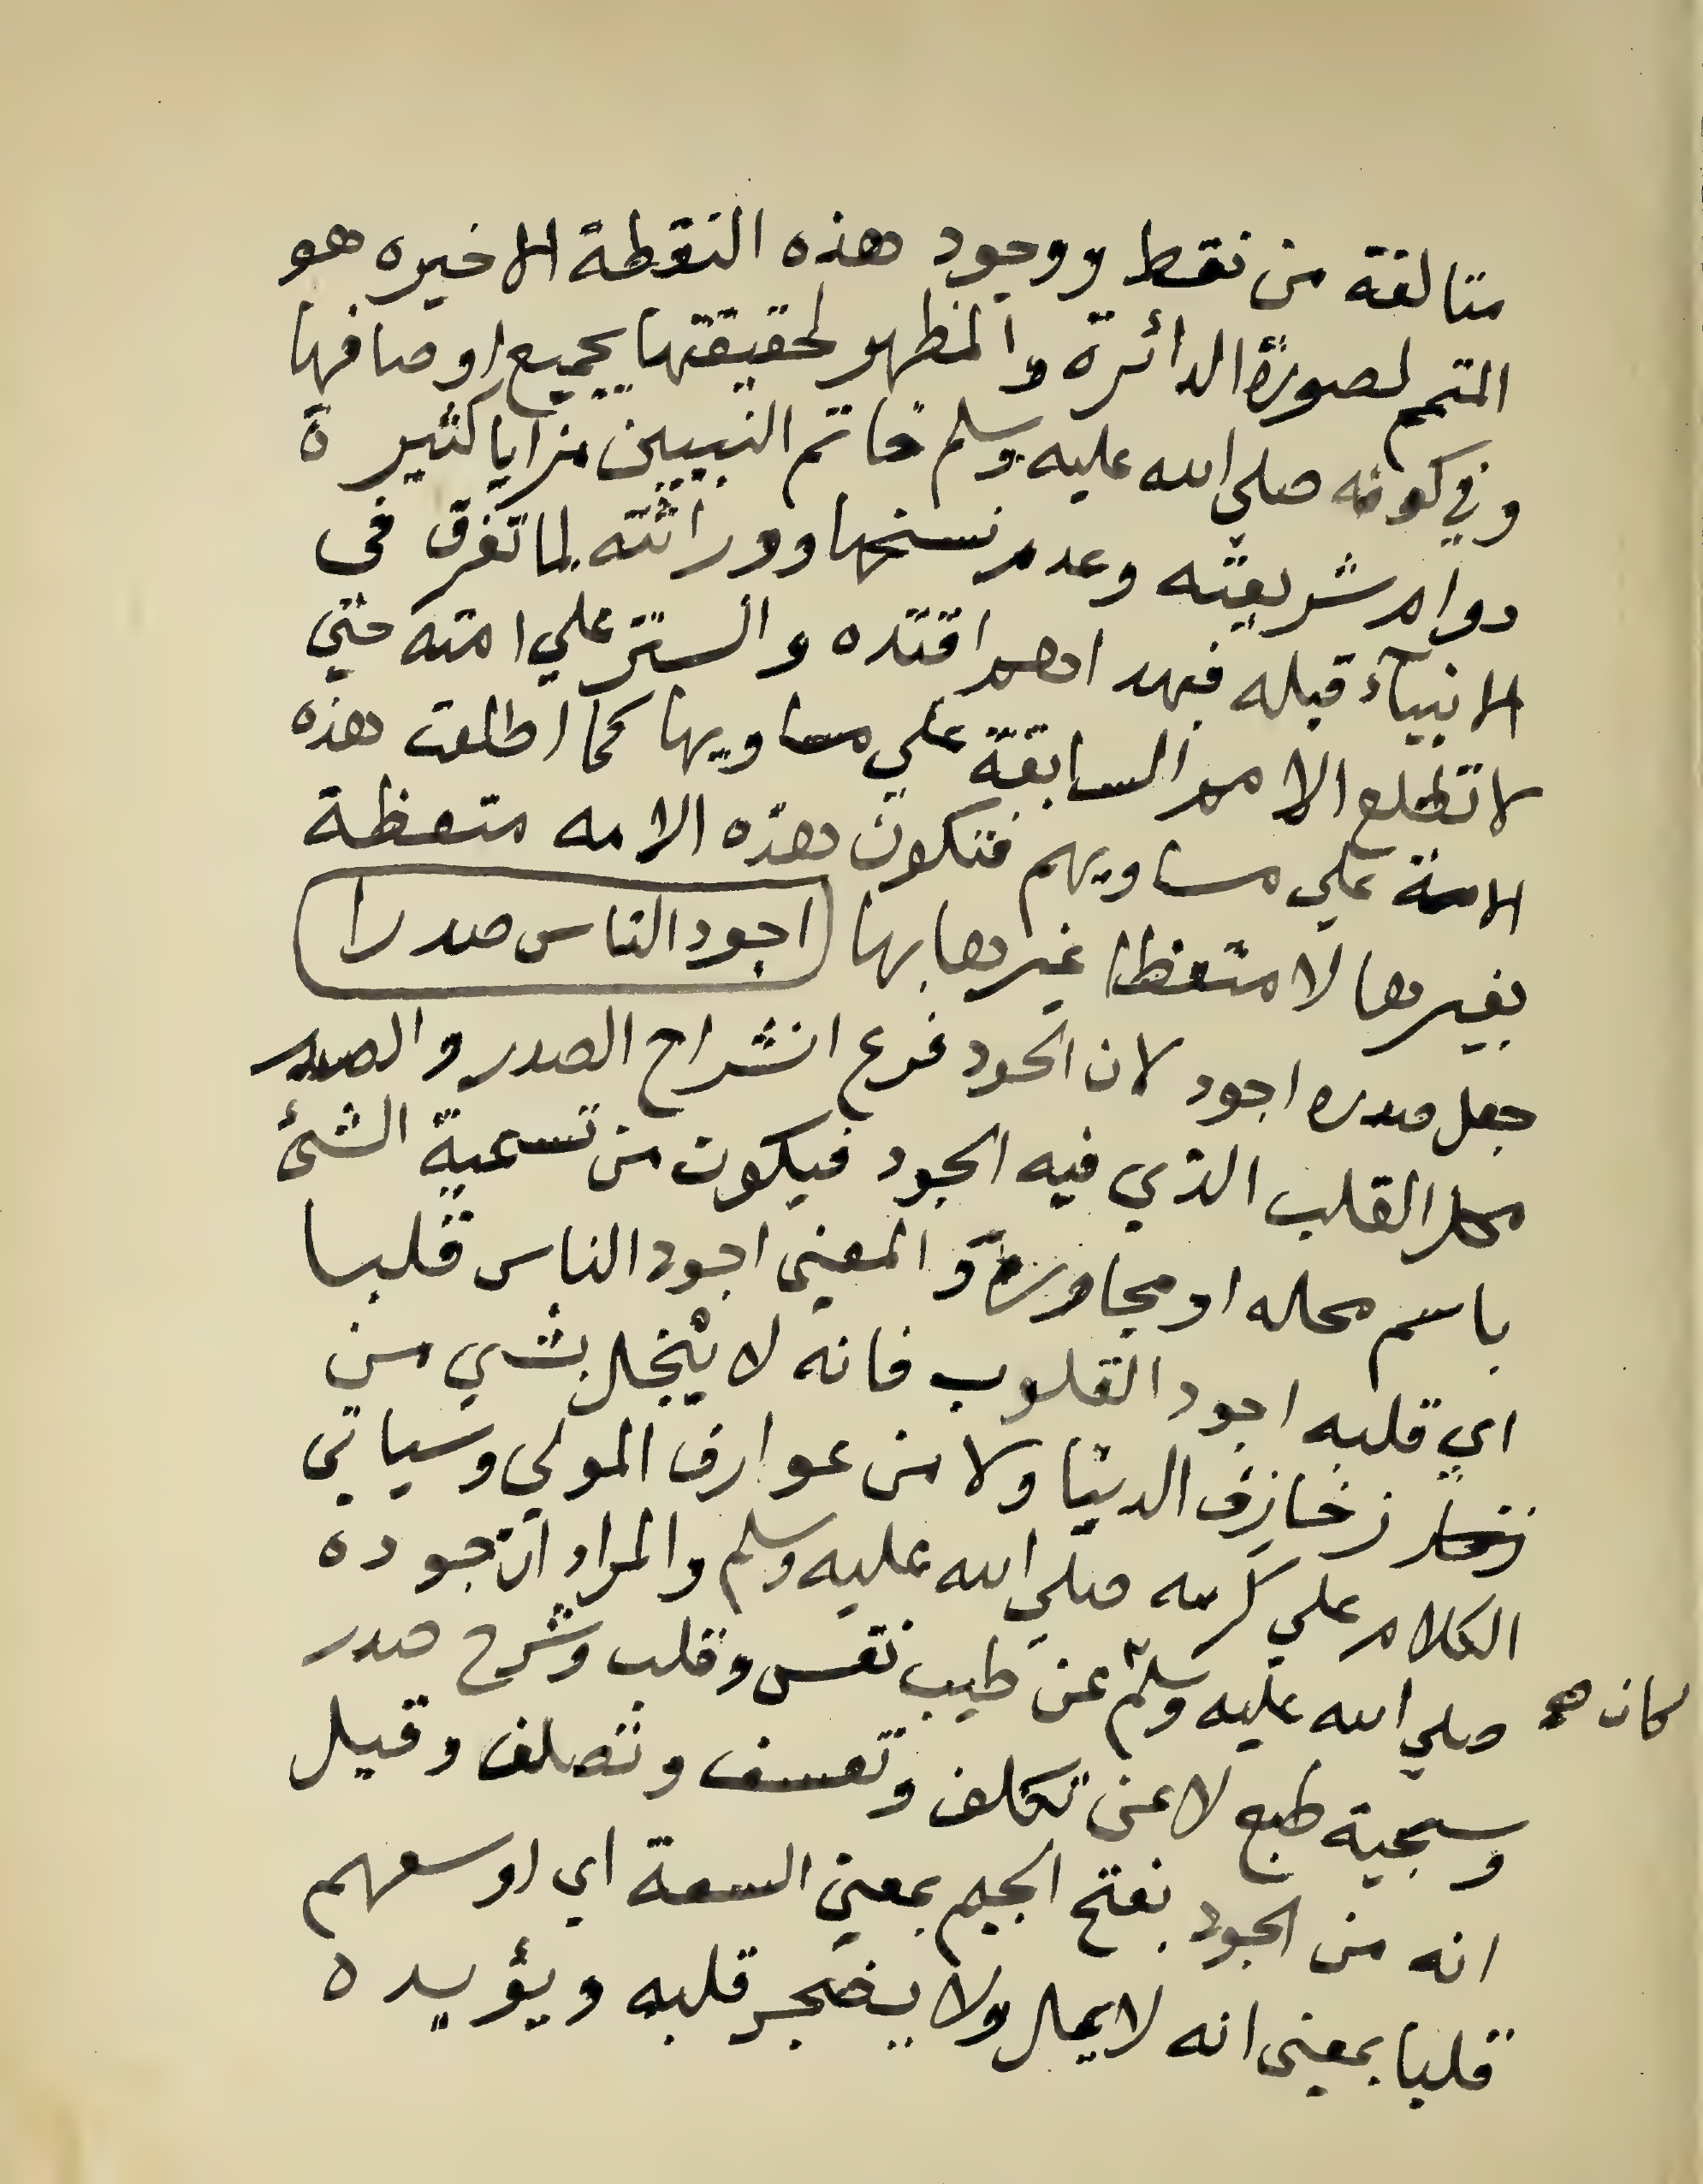 متالفة من نقط ووجود هذه النقطة الاخيره هو
المتمم لصورة الدائرة والمظهر لحقيقتها بجميع اوصافها
وفي كونه صلي الله عليه وسلم خاتم النبيين مزايا كثيرة
دوام شريعته وعدم نسخها ووراثته لما تفرق في
الانبيآء قبله فبهداهم اقتده والستر علي امته حتي
لا تطلع الامم السابقة علي مساويها كما اطلعت هذه
الامة علي مساويهم فتكون هذه الامه متعظة
بغيرها لا متعظا غيرها بها اجود الناس صدرا
جعل صدره اجود لان الجود فرع انشراح الصدر والصدر
محل القلب الذي فيه الجود فيكون من تسمية الشئ
باسم محله او مجاورة والمعنى اجود الناس قلبا
اي قلبه اجود القلوب فانه لا يبخل بشي من
زخارف الدنيا ولا من عوارف المولي وسياتي
الكلام علي كرمه صلي الله عليه وسلم والمراد ان جوده
كان صلي الله عليه وسلم عن طيب نفس وقلب وشرح صدر
وسجية طبع لا عن تكلف وتعسف وتصلف وقيل
انه من الجود بفتح الجيم بمعني السعة اي اوسعهم
قلبا بمعنى انه لا يمل ولا يضجر قلبه ويؤيده